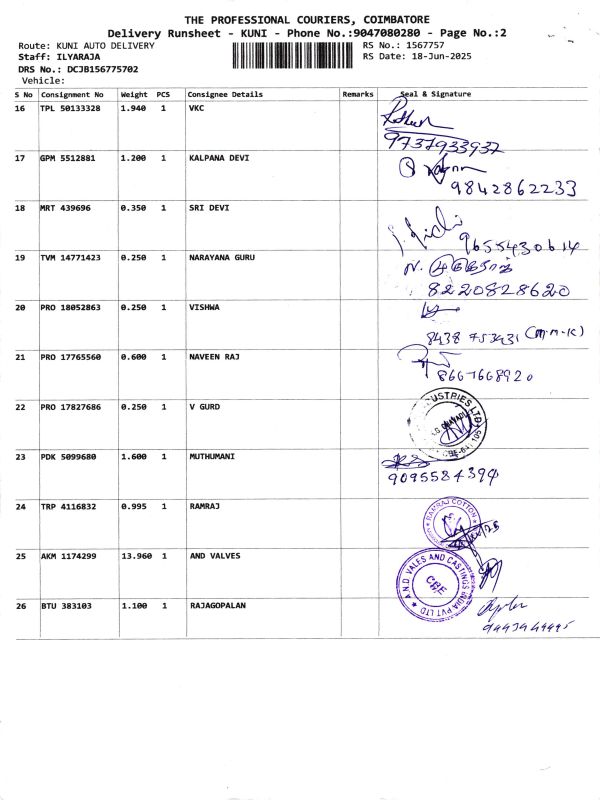 THE PROFESSIONAL COURIERS, COIMBATORE
Delivery Runsheet - KUNI - Phone No.:9047080280 - Page No.:2
Route: KUNI AUTO DELIVERY RS No.: 1567757
Staff: ILYARAJA RS Date: 18-Jun-2025
DRS No.: DCJB156775702
Vehicle:
S No Consignment No Weight PCS Consignee Details Remarks Seal & Signature
16 TPL 50133328 1.940 1 VKC
9737933937
17 GPM 5512881 1.200 1 KALPANA DEVI
9842862233
18 MRT 439696 0.350 1 SRI DEVI
9655430614
19 TVM 14771423 0.250 1 NARAYANA GURU
8220828620
20 PRO 18052863 0.250 1 VISHWA
8438 753431 (M.M.K)
21 PRO 17765560 0.600 1 NAVEEN RAJ
8667668920
22 PRO 17827686 0.250 1 V GURD
23 PDK 5099680 1.600 1 MUTHUMANI
9095584394
24 TRP 4116832 0.995 1 RAMRAJ
RAMRAJ COTTON
25 AKM 1174299 13.960 1 AND VALVES
A.N.D. VALES AND CASTINGS INDIA PVT LTD
CBE
26 BTU 383103 1.100 1 RAJAGOPALAN